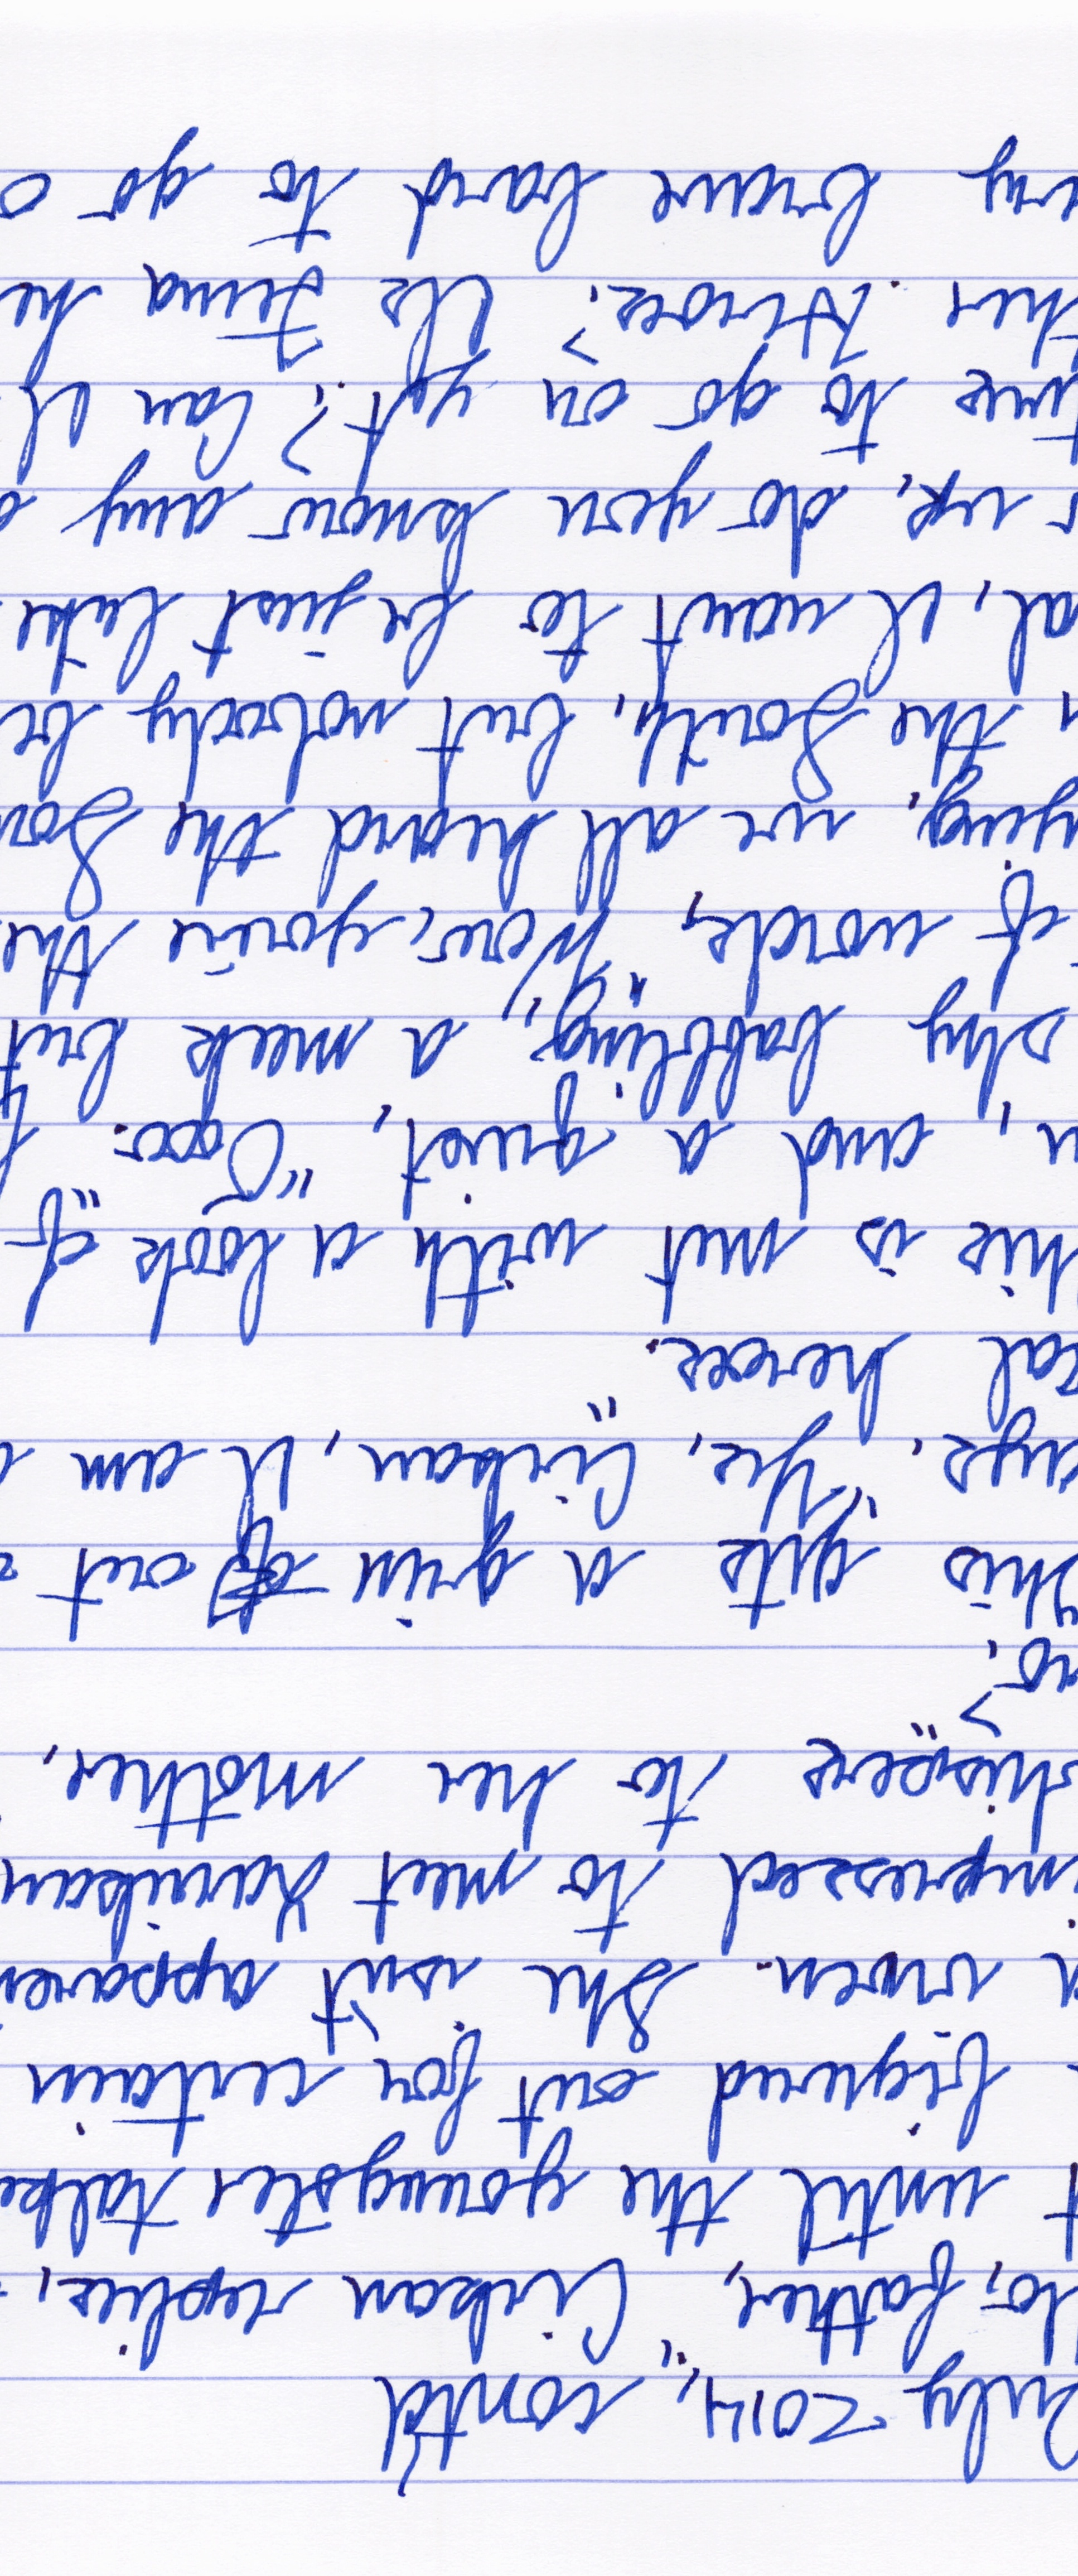 July 2014, cont'd
lo, father," Cirkan replies,
t until the youngster talke
figured out for certain
a vixen. She isn't apparen
impressed to meet Danikan
whispers to her mother, "
no?"
This gets a grin out
ays. "Yes, Cirkan, I am
eal heroes."
his is met with a look of
n, and a quiet, "Ooo."
shy babbling, a meek but
of words, "Wow, you're the
ying, we all heard the Son
n the South, but nobody be
al, I want to be just like
r up, do you know any
ture to go on yet? Can I
ther Heroes? Is Fima he
ery brave band to go o